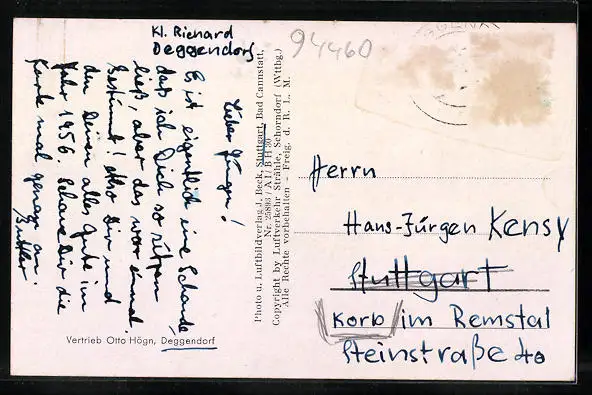 Kl. Rienard
Deggendorf
94460
GGEN
Lieber Jürgen!
Es ist eigentlich eine Schande,
daß ich Dich so sitzen
ließ, aber das war einmal
bestimmt! Also Dir und
den Deinen alles Gute im
Jahr 1956. Schaue Dir die
Karte mal genau an.
Photo u. Luftbildverlag J. Beck, Stuttgart, Bad Cannstatt,
Nr. 25893 / A I / B H 30
Copyright by Luftverkehr Strähle, Schorndorf (Wttbg.)
Alle Rechte vorbehalten - Freig. d. R. L. M.
Herrn
Hans-Jürgen Kensy
Stuttgart
Korb im Remstal
Steinstraße 40
Vertrieb Otto Högn, Deggendorf